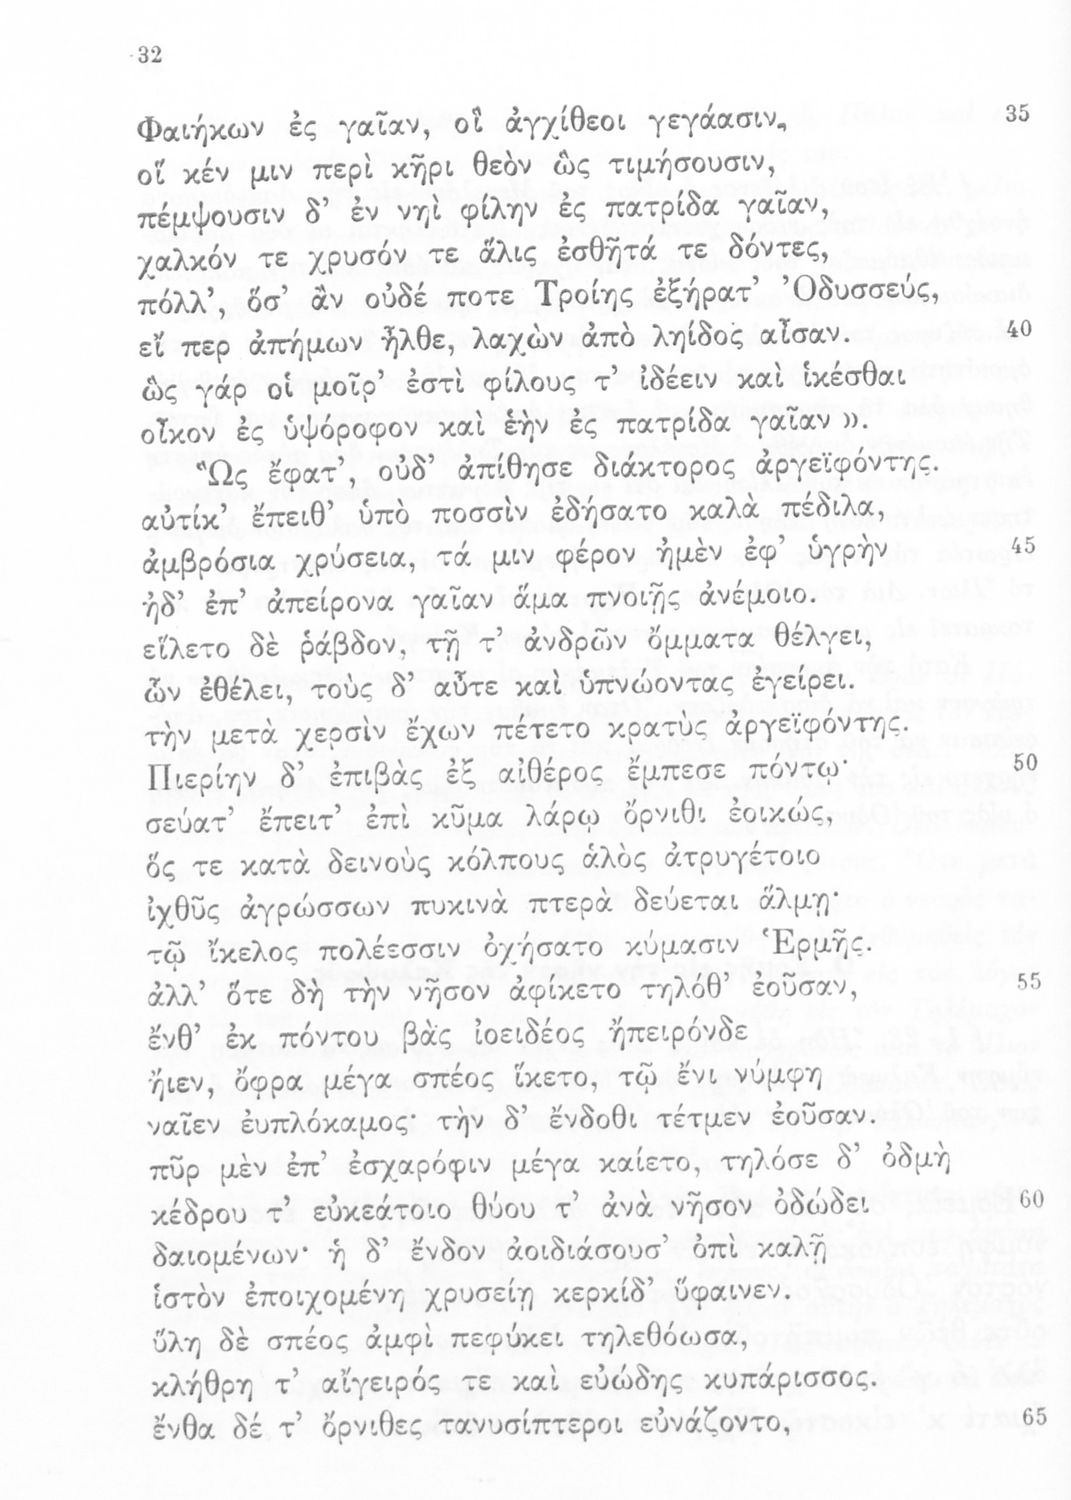 32
Φαιήκων ἐς γαῖαν, οἳ ἀγχίθεοι γεγάασιν, 35
οἵ κέν μιν περὶ κῆρι θεὸν ὣς τιμήσουσιν,
πέμψουσιν δ’ ἐν νηὶ φίλην ἐς πατρίδα γαῖαν,
χαλκόν τε χρυσόν τε ἅλις ἐσθῆτά τε δόντες,
πόλλ’, ὅσ’ ἂν οὐδέ ποτε Τροίης ἐξήρατ’ Ὀδυσσεύς,
εἴ περ ἀπήμων ἦλθε, λαχὼν ἀπὸ ληίδος αἶσαν. 40
ὣς γάρ οἱ μοῖρ’ ἐστὶ φίλους τ’ ἰδέειν καὶ ἱκέσθαι
οἶκον ἐς ὑψόροφον καὶ ἑὴν ἐς πατρίδα γαῖαν ».
Ὣς ἔφατ’, οὐδ’ ἀπίθησε διάκτορος ἀργεϊφόντης.
αὐτίκ’ ἔπειθ’ ὑπὸ ποσσὶν ἐδήσατο καλὰ πέδιλα,
ἀμβρόσια χρύσεια, τά μιν φέρον ἠμὲν ἐφ’ ὑγρὴν 45
ἠδ’ ἐπ’ ἀπείρονα γαῖαν ἅμα πνοιῇς ἀνέμοιο.
εἵλετο δὲ ῥάβδον, τῇ τ’ ἀνδρῶν ὄμματα θέλγει,
ὧν ἐθέλει, τοὺς δ’ αὖτε καὶ ὑπνώοντας ἐγείρει.
τὴν μετὰ χερσὶν ἔχων πέτετο κρατὺς ἀργεϊφόντης.
Πιερίην δ’ ἐπιβὰς ἐξ αἰθέρος ἔμπεσε πόντῳ· 50
σεύατ’ ἔπειτ’ ἐπὶ κῦμα λάρῳ ὄρνιθι ἐοικώς,
ὅς τε κατὰ δεινοὺς κόλπους ἁλὸς ἀτρυγέτοιο
ἰχθῦς ἀγρώσσων πυκινὰ πτερὰ δεύεται ἅλμῃ·
τῷ ἴκελος πολέεσσιν ὀχήσατο κύμασιν Ἑρμῆς.
ἀλλ’ ὅτε δὴ τὴν νῆσον ἀφίκετο τηλόθ’ ἐοῦσαν, 55
ἔνθ’ ἐκ πόντου βὰς ἰοειδέος ἤπειρόνδε
ἤιεν, ὄφρα μέγα σπέος ἵκετο, τῷ ἔνι νύμφη
ναῖεν ἐυπλόκαμος· τὴν δ’ ἔνδοθι τέτμεν ἐοῦσαν.
πῦρ μὲν ἐπ’ ἐσχαρόφιν μέγα καίετο, τηλόσε δ’ ὀδμὴ
κέδρου τ’ εὐκεάτοιο θύου τ’ ἀνὰ νῆσον ὀδώδει 60
δαιομένων· ἡ δ’ ἔνδον ἀοιδιάουσ’ ὀπὶ καλῇ
ἱστὸν ἐποιχομένη χρυσείῃ κερκίδ’ ὕφαινεν.
ὕλη δὲ σπέος ἀμφὶ πεφύκει τηλεθόωσα,
κλήθρη τ’ αἴγειρός τε καὶ εὐώδης κυπάρισσος.
ἔνθα δέ τ’ ὄρνιθες τανυσίπτεροι εὐνάζοντο, 65